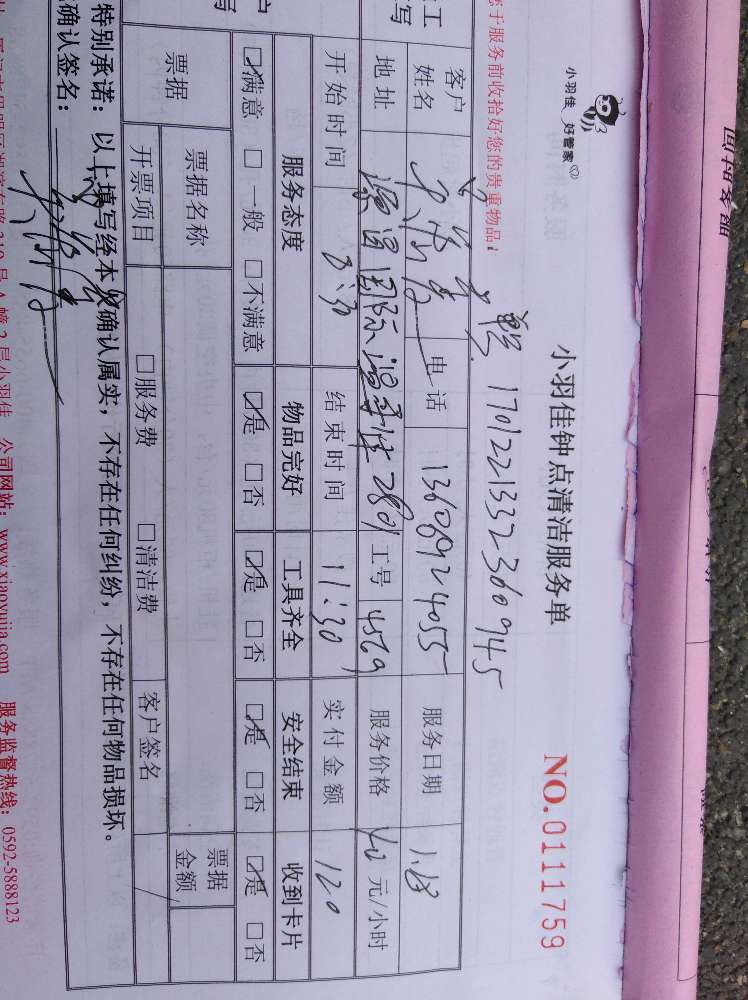 小羽佳 好管家
小羽佳钟点清洁服务单
NO.0111759
于服务前收拾好您的贵重物品!
1701221332360945
客户姓名 电话 13608924055 服务日期 1.18
地址 国际 2801 工号 4569 服务价格 40 元/小时
开始时间 8:30 结束时间 11:30 实付金额 120
服务态度 物品完好 工具齐全 安全结束 收到卡片
☑满意 □一般 □不满意 ☑是 □否 ☑是 □否 ☑是 □否 ☑是 □否
票据 票据名称 票据金额
开票项目 □服务费 □清洁费 客户签名
特别承诺:以上填写经本人确认属实,不存在任何纠纷,不存在任何物品损坏。
确认签名:
310号A幢2层小羽佳 公司网站:www.xiaoyujia.com 服务监督热线:0592-5888123